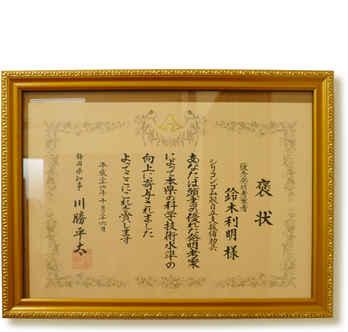 褒状
優秀発明考案者
鈴木利明様
シリコンゴム製自立支援補助具
あなたは頭書の優れた発明考案
によって本県の科学技術水準の
向上に寄与されました
よってここにこれを賞します
平成二十四年十月二十六日
静岡県知事 川勝平太